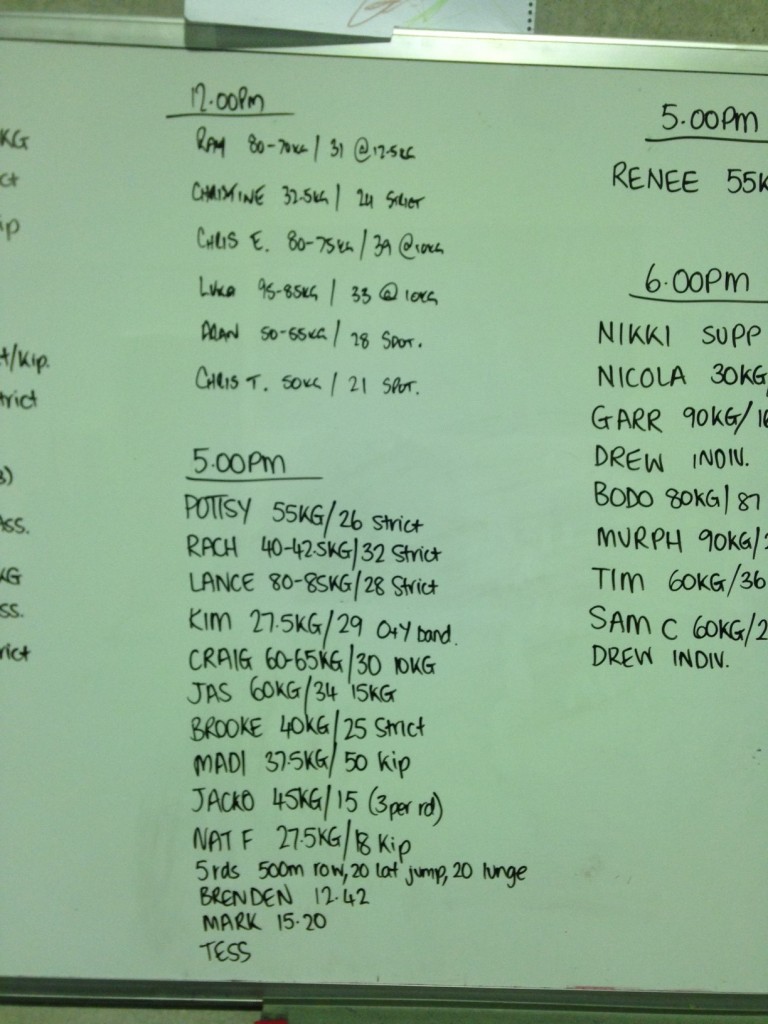 KG
ct
ip
t/Kip.
trict
3)
ss.
KG
ss.
rict
12.00PM
RAM 80-70KG / 31 @12.5KG
CHRISTINE 32.5KG / 24 Strict
CHRIS E. 80-75KG / 39 @10KG
LUKA 95-85KG / 33 @ 10KG
50-55KG / 28 SPOT.
CHRIS T. 50KG / 21 SPOT.
5.00PM
POTTSY 55KG/26 Strict
RACH 40-42.5KG/32 Strict
LANCE 80-85KG/28 Strict
KIM 27.5KG/29 O+Y band.
CRAIG 60-65KG/30 10KG
JAS 60KG/34 15KG
BROOKE 40KG/25 Strict
MADI 37.5KG/50 Kip
JACKO 45KG/15 (3 per rd)
NAT F 27.5KG/18 Kip
5 rds 500m row, 20 lat jump, 20 lunge
BRENDEN 12.42
MARK 15.20
TESS
5.00PM
RENEE 55K
6.00PM
NIKKI SUPP
NICOLA 30KG
GARR 90KG/16
DREW INDIV.
BODO 80KG/87
MURPH 90KG/2
TIM 60KG/36
SAM C 60KG/2
DREW INDIV.